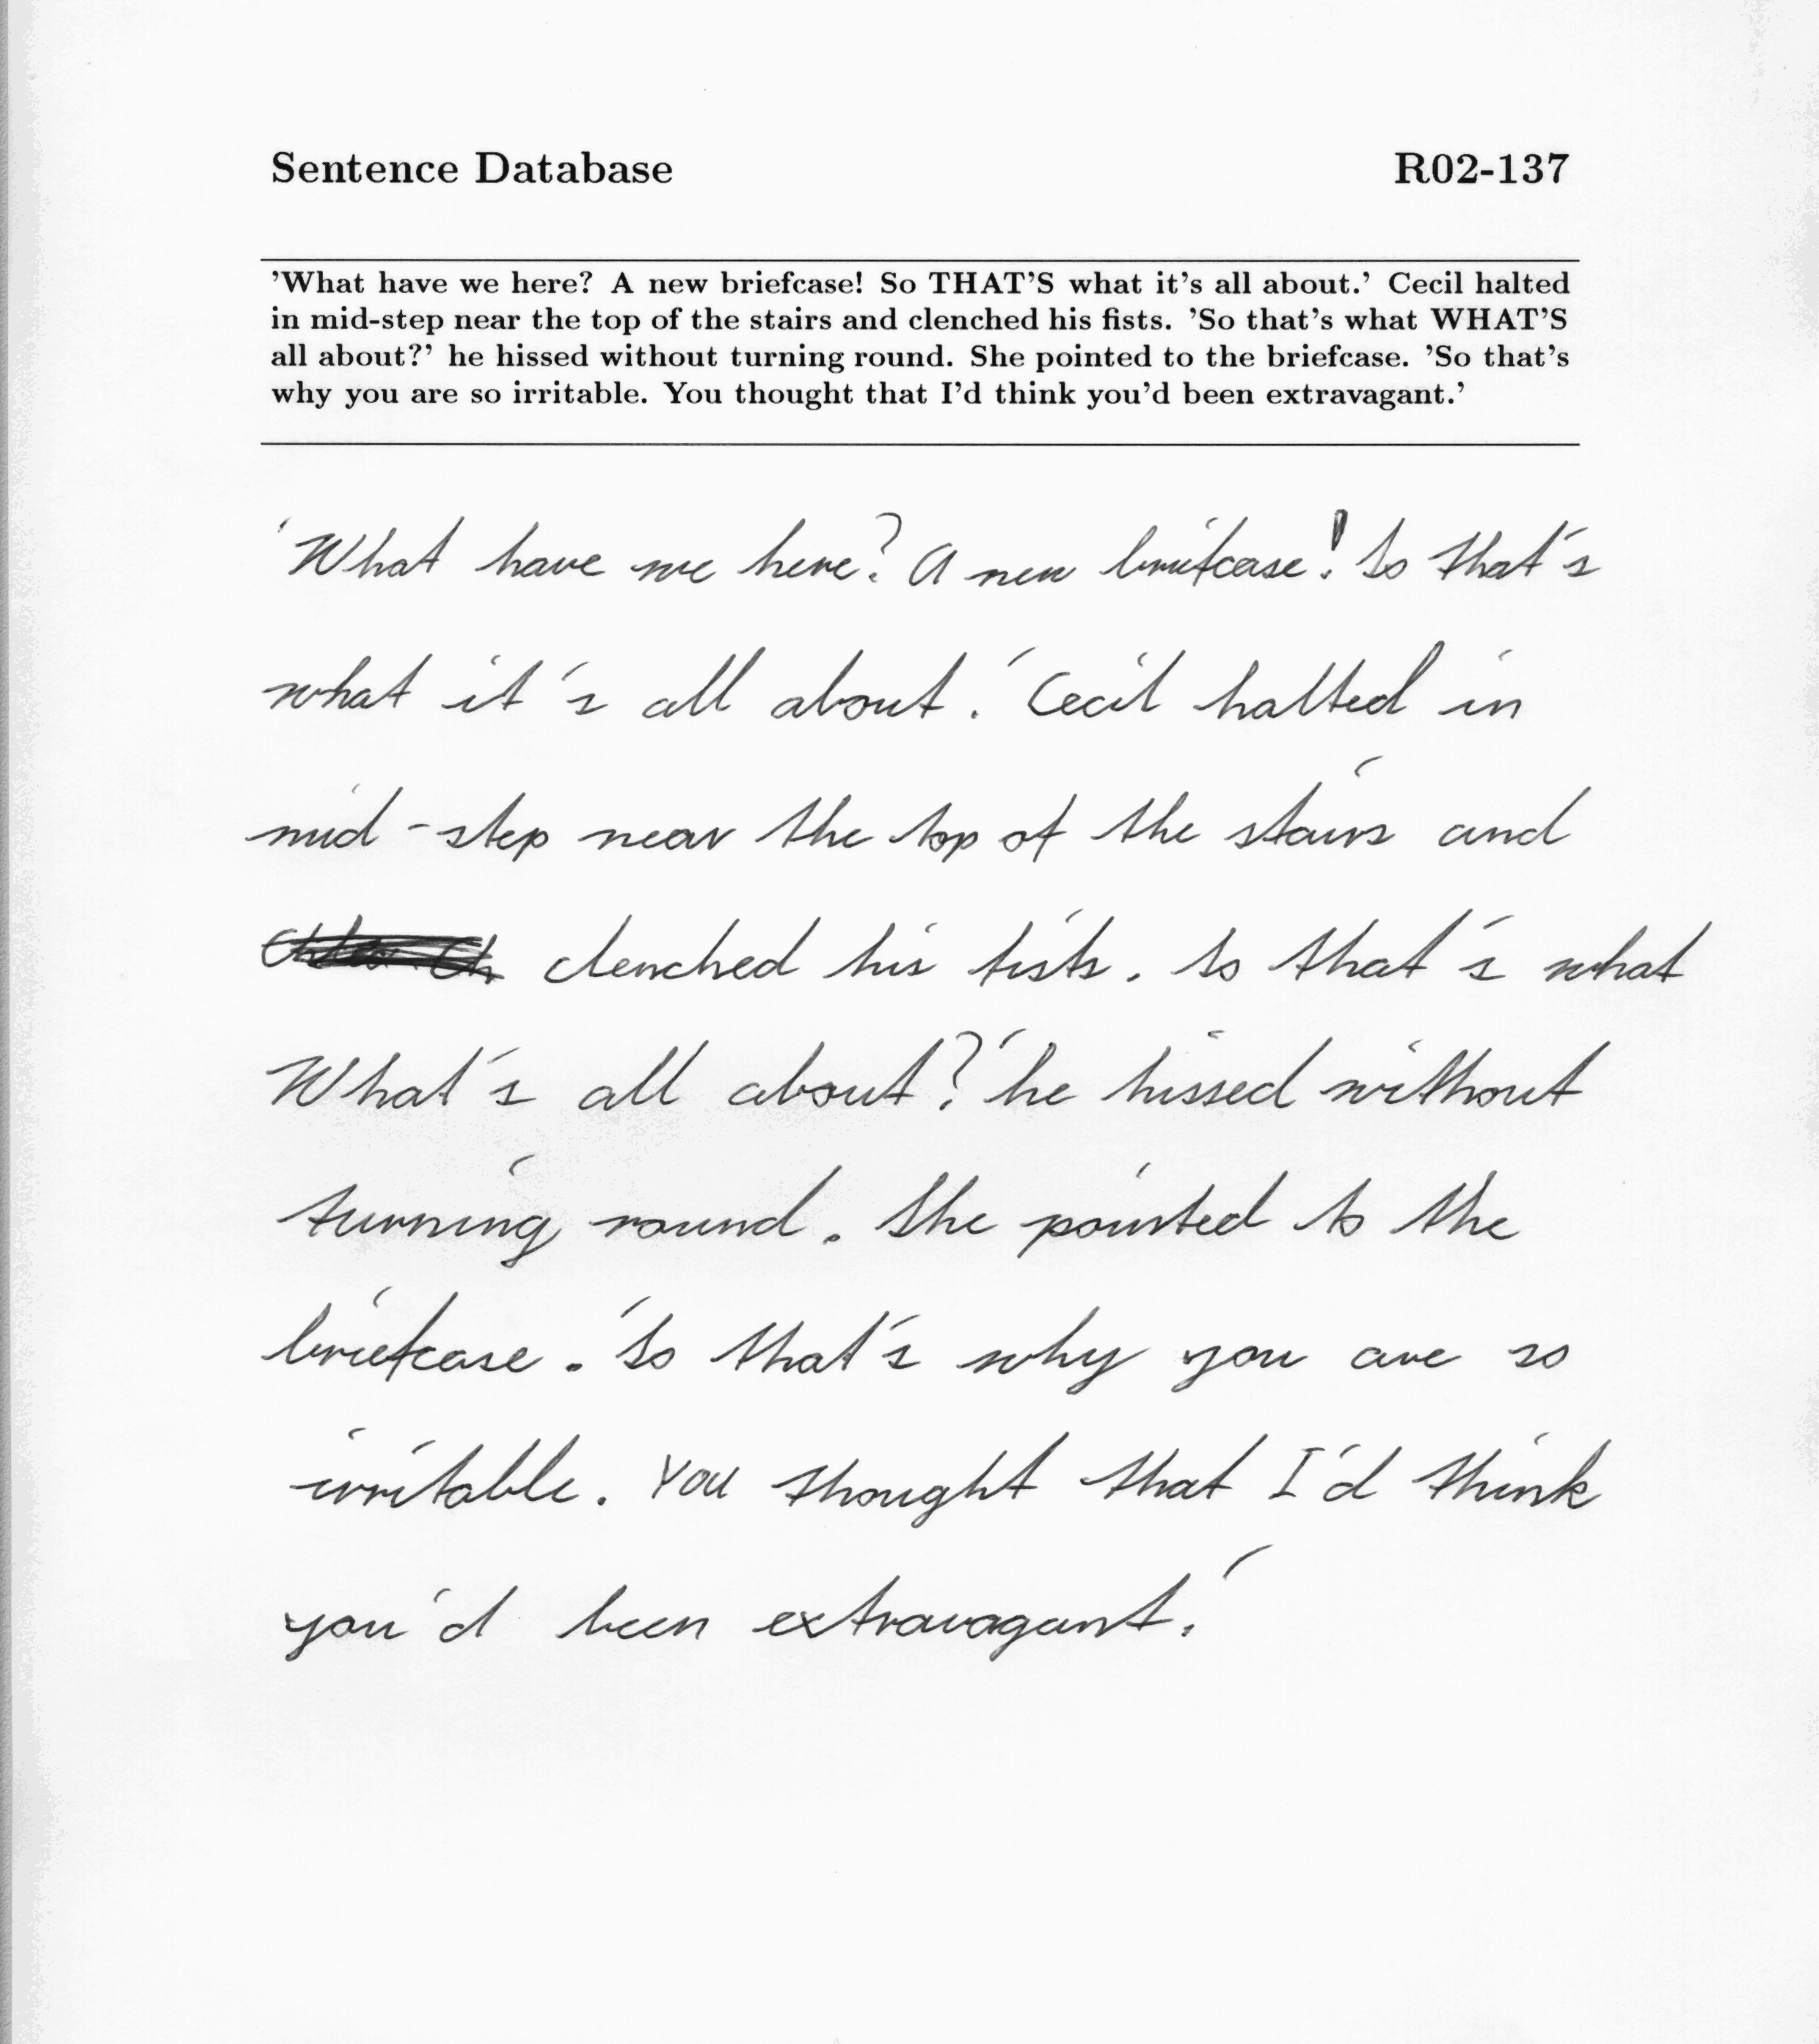 Sentence Database R02-137
'What have we here? A new briefcase! So THAT'S what it's all about.' Cecil halted
in mid-step near the top of the stairs and clenched his fists. 'So that's what WHAT'S
all about?' he hissed without turning round. She pointed to the briefcase. 'So that's
why you are so irritable. You thought that I'd think you'd been extravagant.'
'What have we here? A new briefcase! So that's
what it's all about.' Cecil halted in
mid-step near the top of the stairs and
clenched his fists. So that's what
What's all about?' he hissed without
turning round. She pointed to the
briefcase. 'So that's why you are so
irritable. You thought that I'd think
you'd been extravagant.'